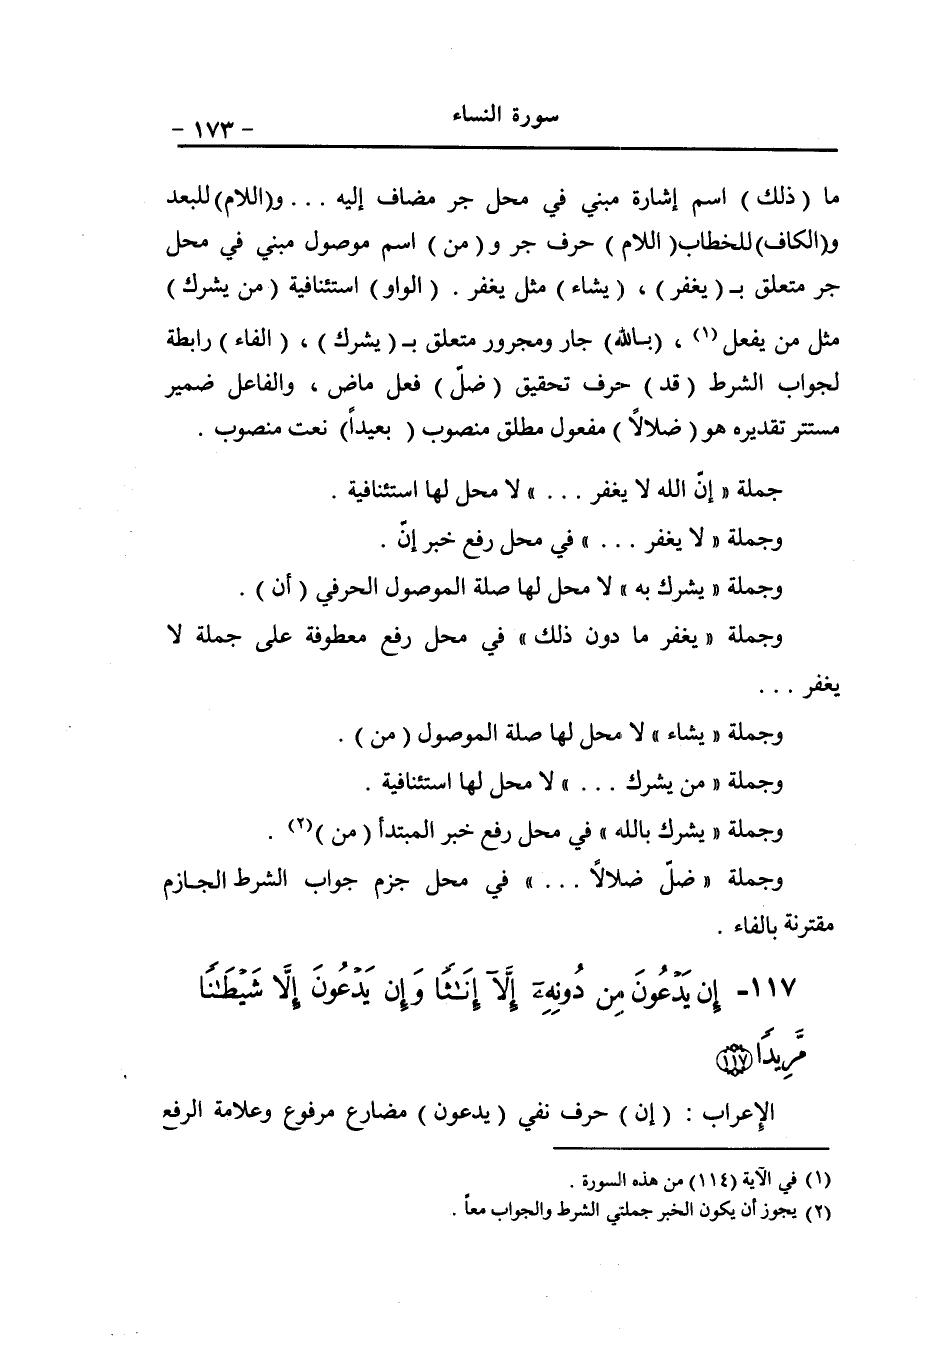 سورة النساء
- ١٧٣ -
ما ( ذلك ) اسم إشارة مبني في محل جر مضاف إليه ... و(اللام) للبعد
و(الكاف) للخطاب ( اللام ) حرف جر و ( من ) اسم موصول مبني في محل
جر متعلق بـ ( يغفر ) ، ( يشاء ) مثل يغفر . ( الواو ) استئنافية ( من يشرك )
مثل من يفعل (١) ، (بـالله) جار ومجرور متعلق بـ ( يشرك ) ، ( الفاء ) رابطة
لجواب الشرط ( قد ) حرف تحقيق ( ضلّ ) فعل ماض ، والفاعل ضمير
مستتر تقديره هو ( ضلالاً ) مفعول مطلق منصوب ( بعيداً ) نعت منصوب .
جملة « إنّ الله لا يغفر ... » لا محل لها استئنافية .
وجملة « لا يغفر ... » في محل رفع خبر إنّ .
وجملة « يشرك به » لا محل لها صلة الموصول الحرفي ( أن ) .
وجملة « يغفر ما دون ذلك » في محل رفع معطوفة على جملة لا
يغفر ...
وجملة « يشاء » لا محل لها صلة الموصول ( من ) .
وجملة « من يشرك ... » لا محل لها استئنافية .
وجملة « يشرك بالله » في محل رفع خبر المبتدأ ( من ) (٢) .
وجملة « ضلّ ضلالاً ... » في محل جزم جواب الشرط الجـازم
مقترنة بالفاء .
١١٧- إِن يَدْعُونَ مِن دُونِهِۦٓ إِلَّآ إِنَـٰثًا وَإِن يَدْعُونَ إِلَّا شَيْطَـٰنًا
مَّرِيدًا ١١٧
الإعراب : ( إن ) حرف نفي ( يدعون ) مضارع مرفوع وعلامة الرفع
(١) في الآية (١١٤) من هذه السورة .
(٢) يجوز أن يكون الخبر جملتي الشرط والجواب معاً .